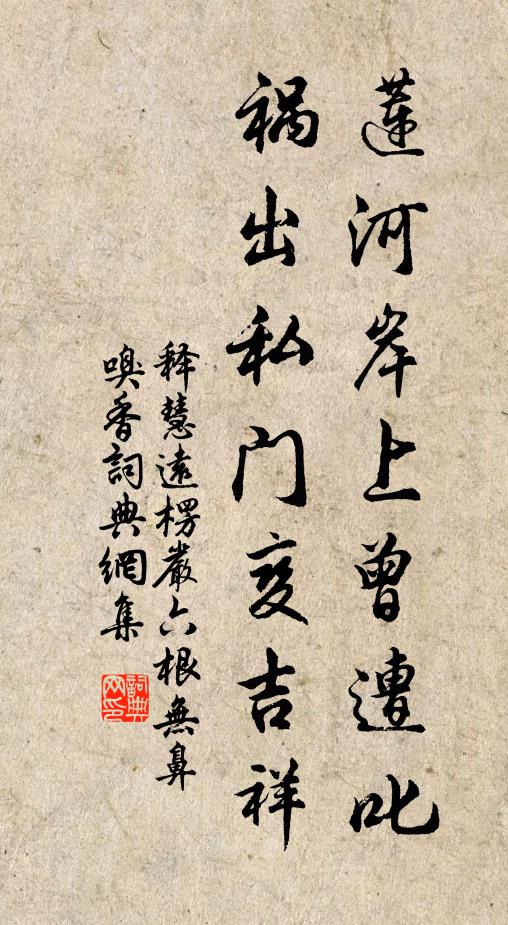 蓮河岸上曾遭叱
祸出私門变吉祥
释慧遠楞嚴六根無鼻
嗅香詞典網集
詞典网印